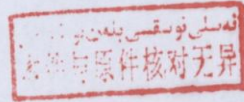 ئەسلى نۇسقىسى بىلەن
件与原件核对无异